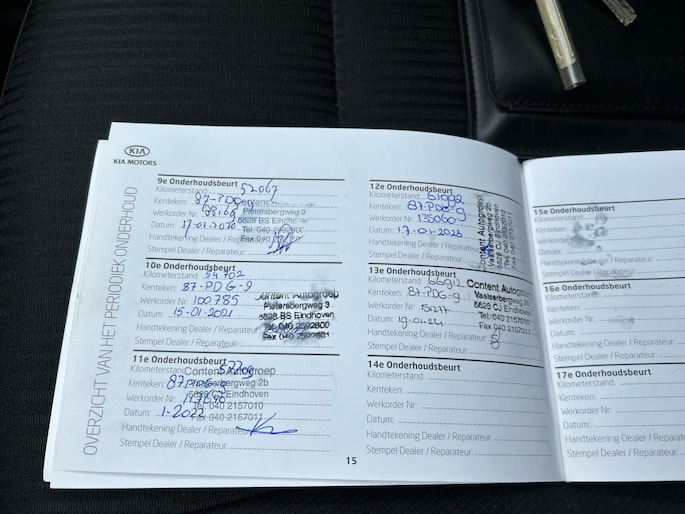 KIA
KIA MOTORS
OVERZICHT VAN HET PERIODIEK ONDERHOUD
9e Onderhoudsbeurt
Kilometerstand: 52067
Kenteken: 87-PDG-9
Content Autogroep
Werkorder Nr:
Pietersbergweg 3
5628 BS Eindhoven
Datum: 17-01-2020
Tel. 040-2592600
Handtekening Dealer / Reparateur:
Fax 040-2592601
Stempel Dealer / Reparateur:
10e Onderhoudsbeurt
Kilometerstand: 54702
Kenteken: 87-PDG-9
Werkorder Nr: 100785
Datum: 15-01-2021
Handtekening Dealer / Reparateur:
Stempel Dealer / Reparateur:
Content Autogroep
Pietersbergweg 3
5628 BS Eindhoven
Tel. 040 2592600
Fax 040 2592601
11e Onderhoudsbeurt
Kilometerstand:
Content Autogroep
Kenteken: 87-PDG-9
Werkorder Nr:
5628 CJ Eindhoven
Tel 040-2157010
Datum: 1-2022
Fax 040-2157011
Handtekening Dealer / Reparateur:
Stempel Dealer / Reparateur:
15
12e Onderhoudsbeurt
Kilometerstand: 61992
Kenteken: 87-PDG-9
Werkorder Nr: 135060
Datum: 17-01-2023
Handtekening Dealer / Reparateur:
Stempel Dealer / Reparateur:
Content Autogroep
Vaalserbergweg 2b
5628 CJ Eindhoven
Tel. 040-2157010
Fax 040-2157011
13e Onderhoudsbeurt
Kilometerstand: 66912
Kenteken: 87-PDG-9
Werkorder Nr: 51277
Datum: 19-01-24
Handtekening Dealer / Reparateur:
Stempel Dealer / Reparateur:
Content Autogroep
Vaalserbergweg 2b
5628 CJ Eindhoven
Tel. 040 2157010
Fax 040 2157011
14e Onderhoudsbeurt
Kilometerstand:
Kenteken:
Werkorder Nr:
Datum:
Handtekening Dealer / Reparateur:
Stempel Dealer / Reparateur:
15e Onderhoudsbeurt
Kilometerstand:
Kenteken:
Werkorder
Datum:
Handtekening Dealer / Reparateur:
Stempel Dealer / Reparateur:
16e Onderhoudsbeurt
Kilometerstand:
Kenteken:
Werkorder Nr:
Datum:
Handtekening Dealer / Reparateur:
Stempel Dealer / Reparateur:
17e Onderhoudsbeurt
Kilometerstand:
Kenteken:
Werkorder Nr:
Datum:
Handtekening Dealer / Reparateur:
Stempel Dealer / Reparateur: